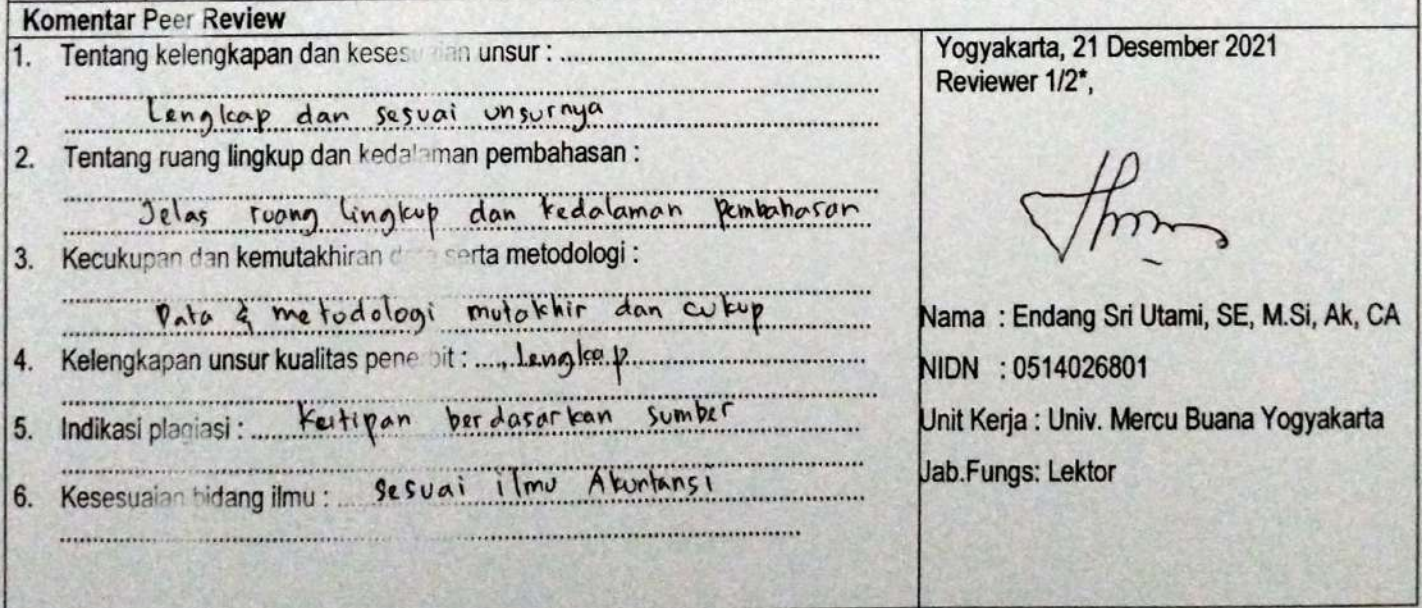 Komentar Peer Review
1. Tentang kelengkapan dan kesesuaian unsur : ........
Lengkap dan sesuai unsurnya
2. Tentang ruang lingkup dan kedalaman pembahasan :
Jelas ruang lingkup dan kedalaman pembahasan
3. Kecukupan dan kemutakhiran data serta metodologi :
Data & metodologi mutakhir dan cukup
4. Kelengkapan unsur kualitas penerbit : ..... Lengkap........
5. Indikasi plagiasi : ..... Kutipan berdasarkan sumber
6. Kesesuaian bidang ilmu : .... sesuai ilmu Akuntansi
Yogyakarta, 21 Desember 2021
Reviewer 1/2*,
Nama : Endang Sri Utami, SE, M.Si, Ak, CA
NIDN : 0514026801
Unit Kerja : Univ. Mercu Buana Yogyakarta
Jab.Fungs: Lektor